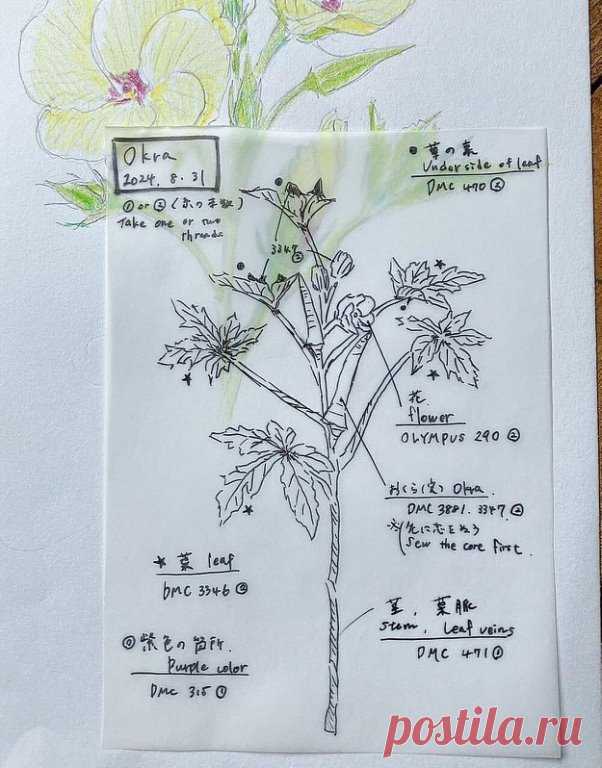 Okra
2024. 8. 31
①or② (糸の本数)
Take one or two
threads
●葉の裏
Underside of leaf
DMC 470②
3347
②
花
flower
OLYMPUS 290②
おくら(実) Okra.
DMC 3881. 3347②
※先に芯をぬう
Sew the core first.
★葉 leaf
DMC 3346②
◎紫色の箇所.
Purple color
DMC 315①
茎, 葉脈
stem, Leaf veins
DMC 471①
postila.ru